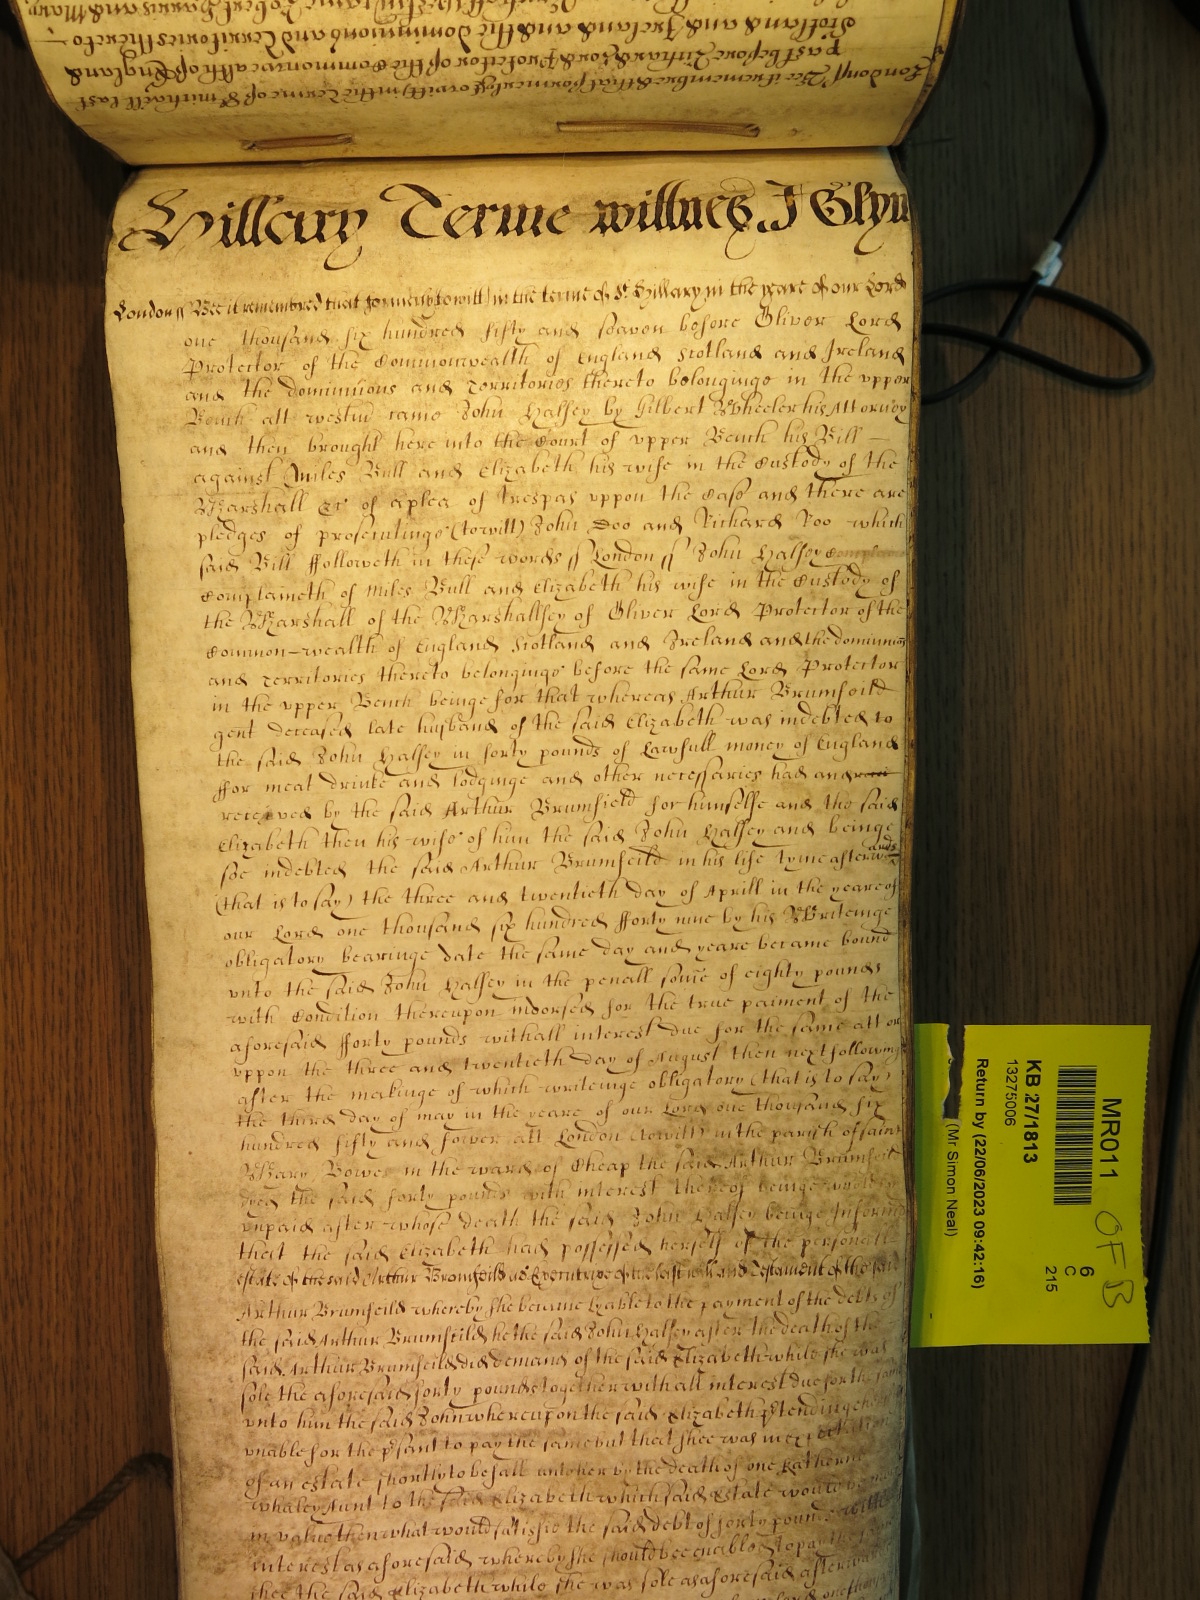 Stotland and Ireland and the dominions and Territories thereto
past before Richard Lord Protector of the Commonwealth of England
London ss Bee it remembred that formerly (to witt) in the Terme of St Michaell last
Hillary Terme wittnes J Glyn
London ss Bee it remembred that formerly (to witt) in the terme of St Hillary in the yeare of our Lord
one thousand six hundred fifty and seaven before Oliver Lord
Protector of the Commonwealth of England Scotland and Ireland
and the dominions and Territories thereto belonginge in the upper
Bench att westm came John Halsey by Gilbert Wheeler his Attorney
and then brought here into the Court of upper Bench his Bill
against Miles Bull and Elizabeth his wife in the Custody of the
Marshall &c of a plea of trespas uppon the Case and there are
pledges of prosecutinge (to witt) John Doo and Richard Roo which
said Bill followeth in these words ss London ss John Halsey
Complaineth of Miles Bull and Elizabeth his wife in the Custody of
the Marshall of the Marshallsey of Oliver Lord Protector of the
Common-wealth of England Scotland and Ireland and the dominions
and Territories thereto belonginge before the same Lord Protector
in the upper Bench beinge for that whereas Arthur Brumfeild
gent deceased late husband of the said Elizabeth was indebted to
the said John Halsey in forty pounds of Lawfull money of England
ffor meat drinke and lodginge and other necessaries had and
received by the said Arthur Brumfield for himselfe and the said
Elizabeth then his wife of him the said John Halsey and beinge
soe indebted the said Arthur Brumfeild in his life tyme afterwards
(that is to say) the three and twentieth day of Aprill in the yeare of
our Lord one thousand six hundred fforty nine by his Writeinge
obligatory bearinge date the same day and yeare became bound
unto the said John Halsey in the penall some of eighty pounds
with Condition thereupon indorsed for the true paiment of the
aforesaid fforty pounds withall interest due for the same att or
uppon the three and twentieth day of August then next followinge
after the makinge of which writeinge obligatory (that is to say)
the third day of may in the yeare of our Lord one thousand six
hundred fifty and fower att London (to witt) in the parish of saint
Mary Bowe in the ward of Cheap the said Arthur Brumfeild
dyed the said forty pounds with interest thereof beinge wholly
unpaid after whose death the said John Halsey beinge Informed
that the said Elizabeth had possessed herself of the personall
estate of the said Arthur Brumfeild as Executrixe of the last will and Testament of the said
Arthur Brumfeild whereby she became lyable to the payment of the debts of
the said Arthur Brumfeild he the said John Halsey after the death of the
said Arthur Brumfeild did demand of the said Elizabeth while she was
sole the aforesaid forty pounds together withall interest due for the same
unto him the said John whereupon the said Elizabeth p'tendinge her
unable for the p'sant to pay the same but that shee was in expectation
of an estate shortly to befall unto her by the death of one Katherine
Whaley Aunt to the said Elizabeth which said Estate would be more
in value then what would satisfie the said debt of forty pounds with
interest as aforesaid whereby she should bee enabled to pay the same
shee the said Elizabeth while she was sole as aforesaid afterwards
MR011
KB 27/1813
13275006
Return by (22/06/2023 09:42:16)
(Mr Simon Neal)
6
C
215
OFB